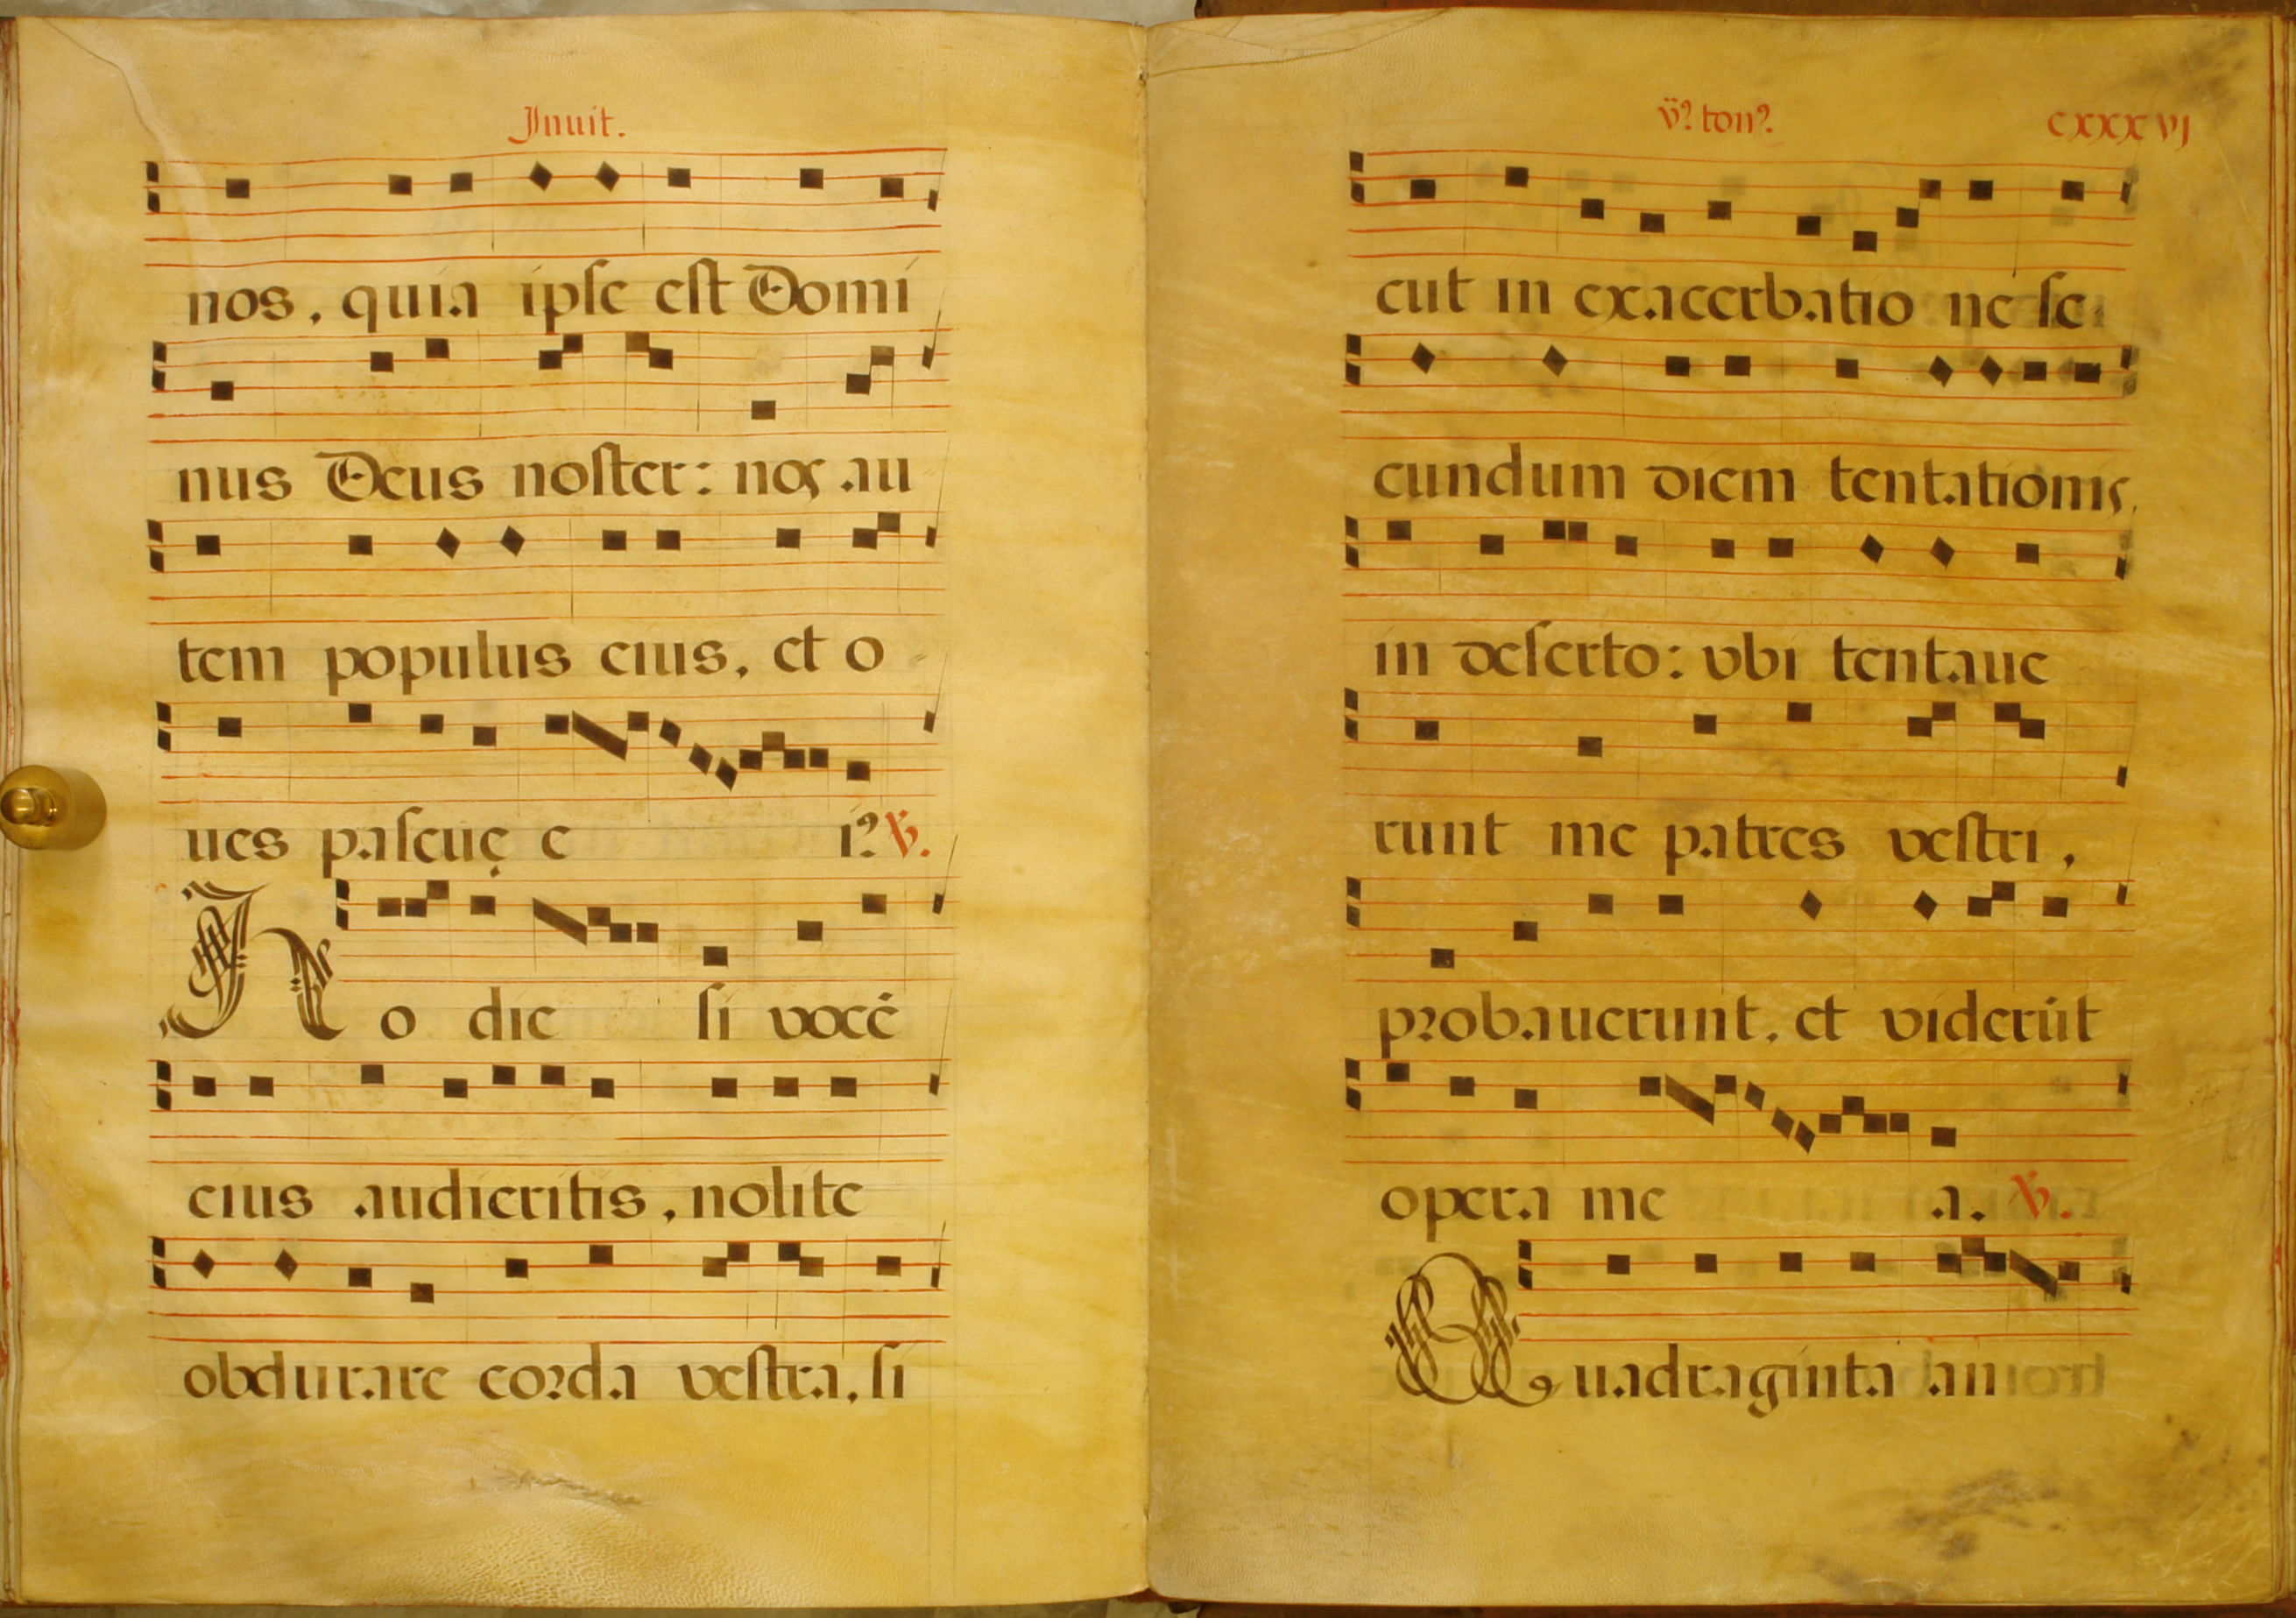 Inuit.
nos, quia ipſe eſt Domi
nus Deus noſter: nos au
tem populus eius, et o
ues paſcuę e i⁹ ℣.
Ho die ſi vocē
eius audieritis, nolite
obdurare corda veſtra, ſi
ton⁹. cxxxvj
cut in exacerbatio ne ſe
cundum diem tentationis,
in deſerto: vbi tentaue
runt me patres veſtri,
probauerunt, et viderūt
opera me a. ℣.
Quadraginta an